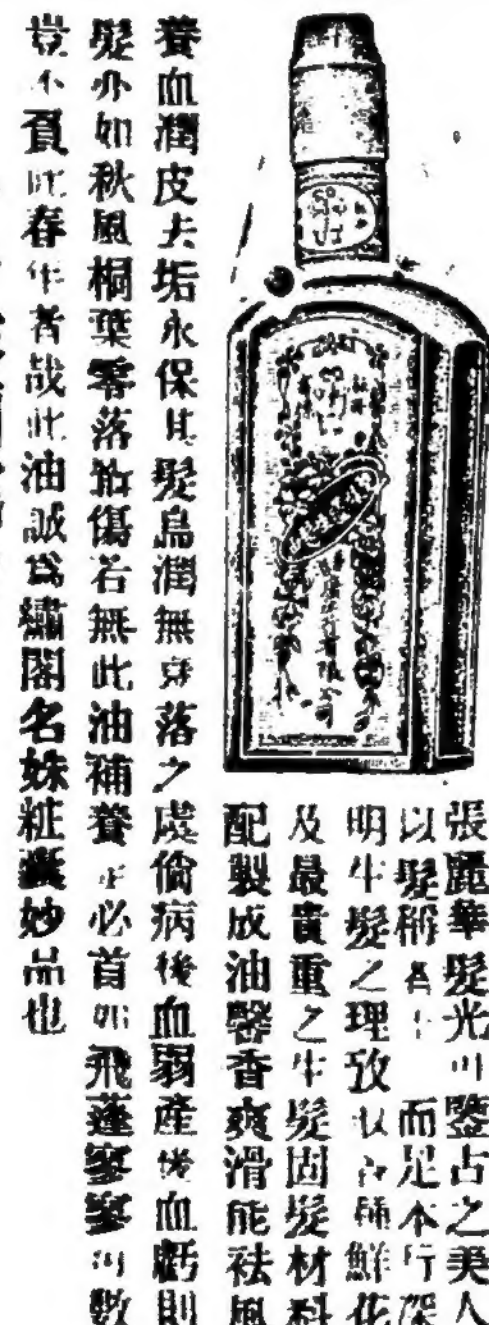 張麗華髮光可鑒古之美人
以髮稱者 而足本行深
明生髮之理故取各種鮮花
及最貴重之生髮固髮材料
配製成油馨香爽滑能袪風
養血潤皮去垢永保其髮烏潤無穿落之虞倘病後血弱產後血虧則
髮亦如秋風桐葉零落堪傷若無此油補養 必首如飛蓬寥寥可數
豈不負此春年者哉此油誠為繡閣名姝粧奩妙品也